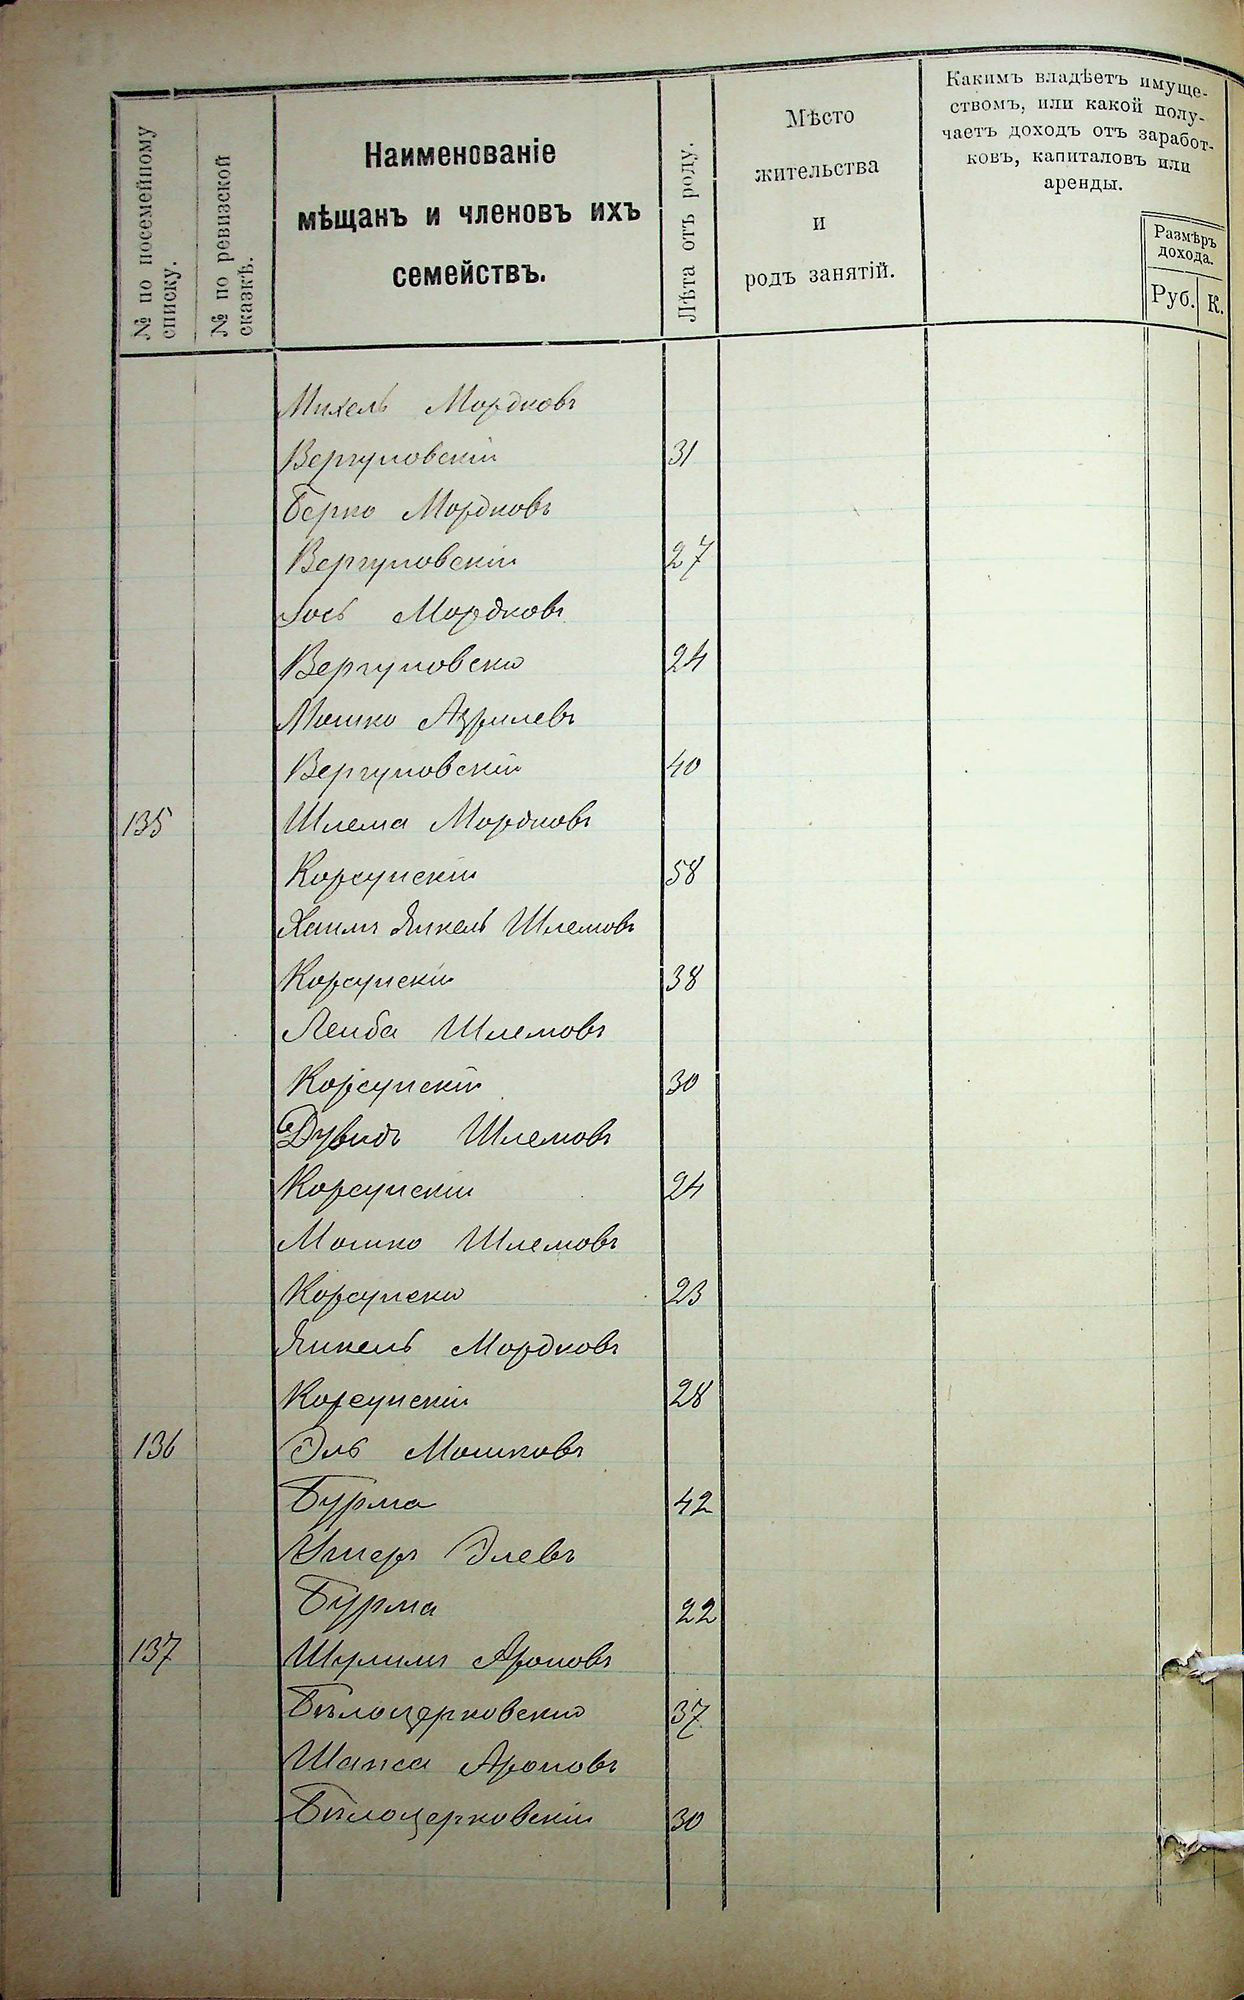 № по посемейному
списку.
№ по ревизской
сказкѣ.
Наименованіе
мѣщанъ и членовъ ихъ
семействъ.
Лѣта отъ роду.
Мѣсто
жительства
и
родъ занятій.
Какимъ владѣетъ имуще-
ствомъ, или какой полу-
чаетъ доходъ отъ заработ-
ковъ, капиталовъ или
аренды.
Размѣръ
дохода.
Руб. К.
Михель Мордковъ
Вергуновскій 31
Берко Мордковъ
Вергуновскій 27
Іось Мордковъ
Вергуновскій 24
Мошко Азрилевъ
Вергуновскій 40
135 Шлема Мордковъ
Корсунскій 58
Хаимъ Янкель Шлемовъ
Корсунскій 38
Лейба Шлемовъ
Корсунскій 30
Дувидъ Шлемовъ
Корсунскій 24
Мошко Шлемовъ
Корсунскій 23
Янкель Мордковъ
Корсунскій 28
136 Эль Мошковъ
Бурма 42
Ушеръ Элевъ
Бурма 22
137 Шулимъ Ароновъ
Бѣлоцерковскій 37
Шапса Ароновъ
Бѣлоцерковскій 30